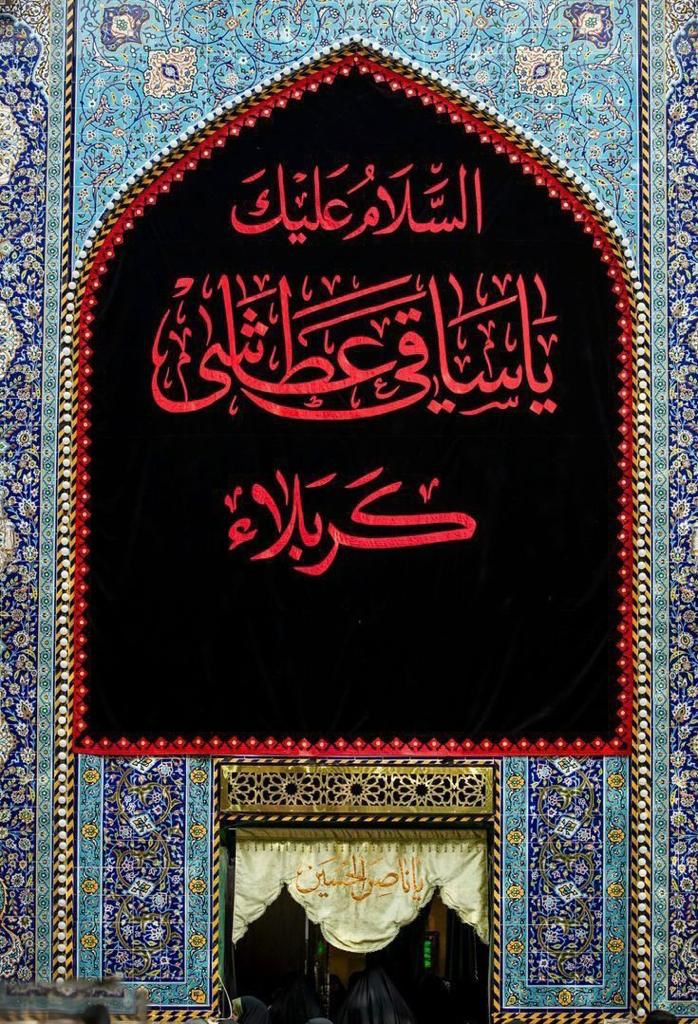 السَّلَامُ عَلَيْكَ
يَا سَاقِي عَطَاشَى
كَرْبَلَاء
يا ناصر الحسين